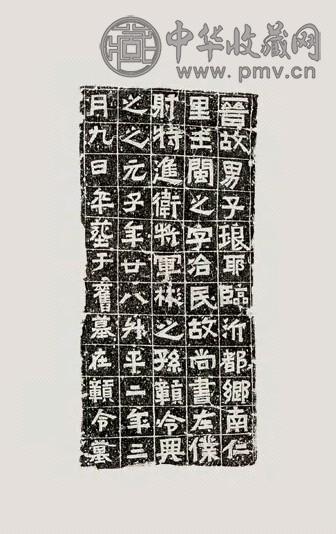 中华收藏网
www.pmv.cn
晉故男子琅耶臨沂都鄉南仁
里王閩之字冶民故尚書左僕
射特進衛將軍彬之孫贛令興
之之元子年廿八升平二年三
月九日卒塟于舊墓在贛令墓